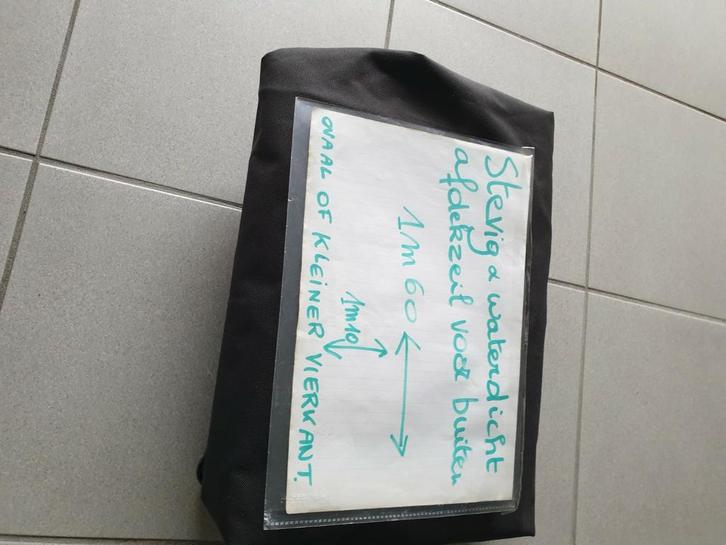 Stevig & waterdicht
afdekzeil voor buiten
1m60 ↔
1m10 ↕
OVAAL OF KLEINER VIERKANT.